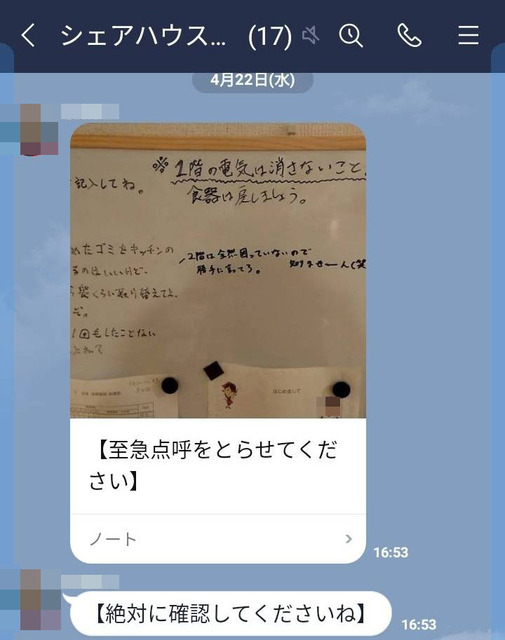 シェアハウス... (17)
4月22日(水)
※1階の電気は消さないこと
食器は戻しましょう。
記入してね。
2階は全然困っていないので
勝手に言ってろ。 知りませーん(笑
れたゴミとキッチンの
るのはいいけど、
くらい取り替えてよ。
1回もしたことない
はじめまして
【至急点呼をとらせてくだ
さい】
ノート
16:53
【絶対に確認してくださいね】
16:53